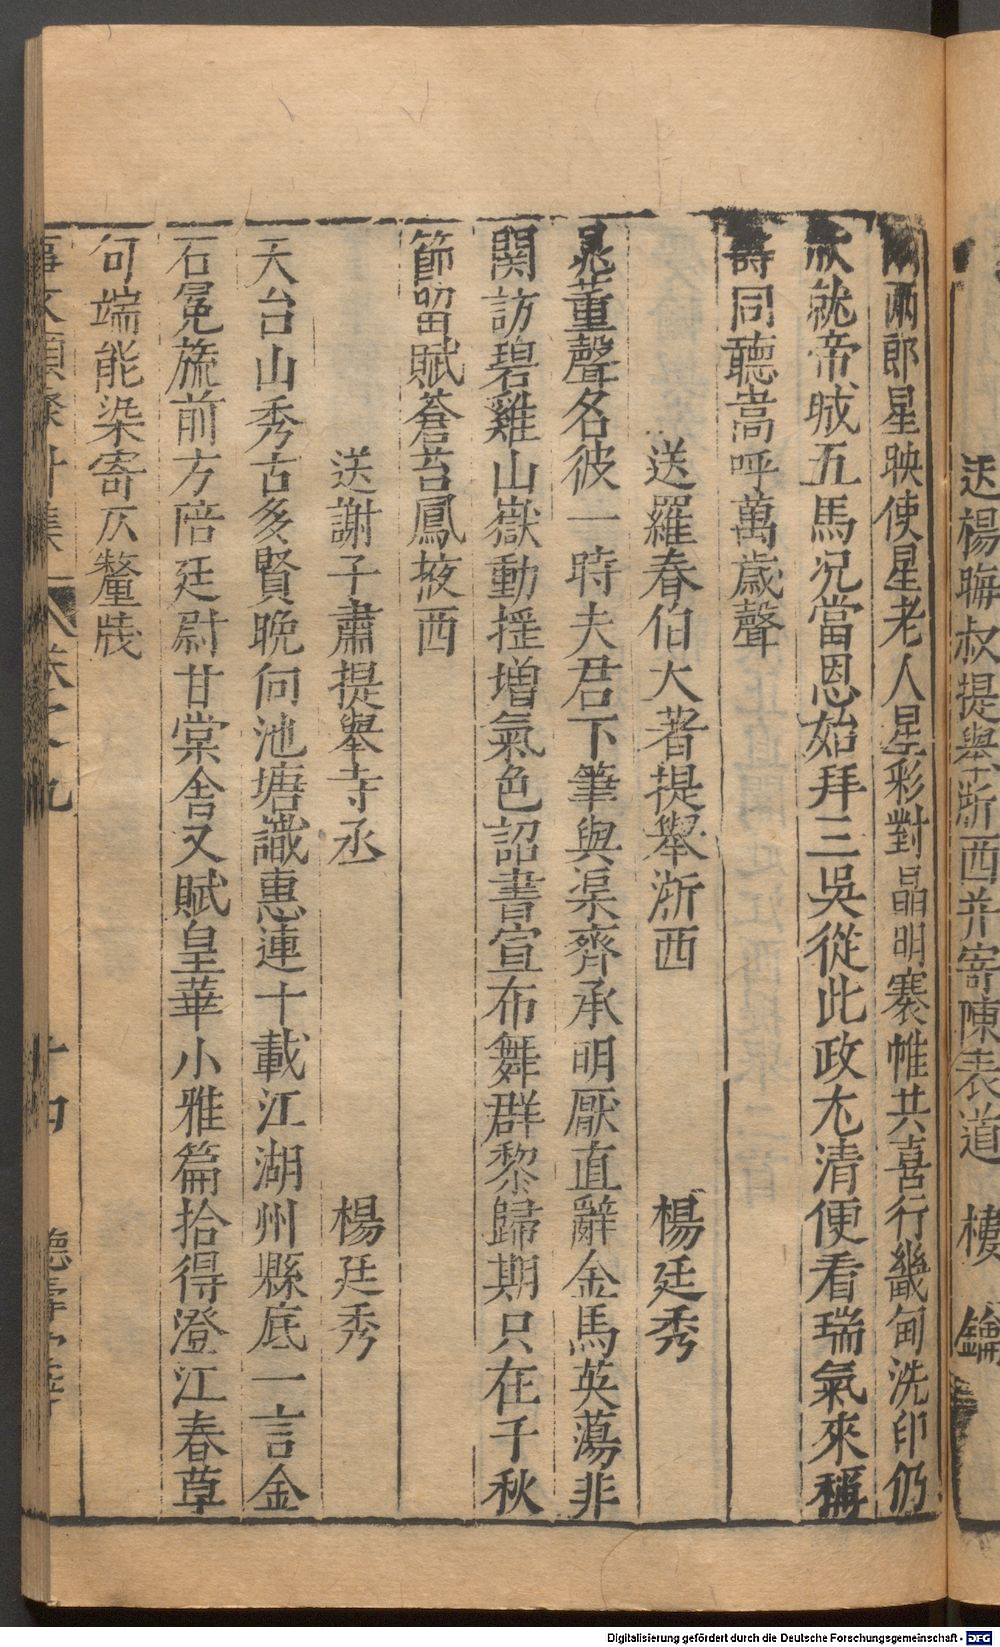 送楊晦叔提舉浙西并寄陳表道　樓　鑰
兩郎星映使星老人星彩對晶明褰帷共喜行畿甸洗印仍
就帝城五馬况當恩始拜三吳從此政尤清便看瑞氣來稱
壽同聽嵩呼萬歲聲
送羅春伯大著提舉浙西　楊廷秀
晁董聲名彼一時夫君下筆與渠齊承明厭直辭金馬英蕩非
関訪碧雞山嶽動揺增氣色詔書宣布舞群黎歸期只在千秋
節留賦蒼苔鳳掖西
送謝子肅提舉寺丞　楊廷秀
天台山秀古多賢晚向池塘識惠連十載江湖州縣底一言金
石冕旒前方陪廷尉甘棠舍又賦皇華小雅篇拾得澄江春草
句端能染寄仄釐牋
事文類聚外集　卷之九　十四　德壽堂梓
Digitalisierung gefördert durch die Deutsche Forschungsgemeinschaft - DFG